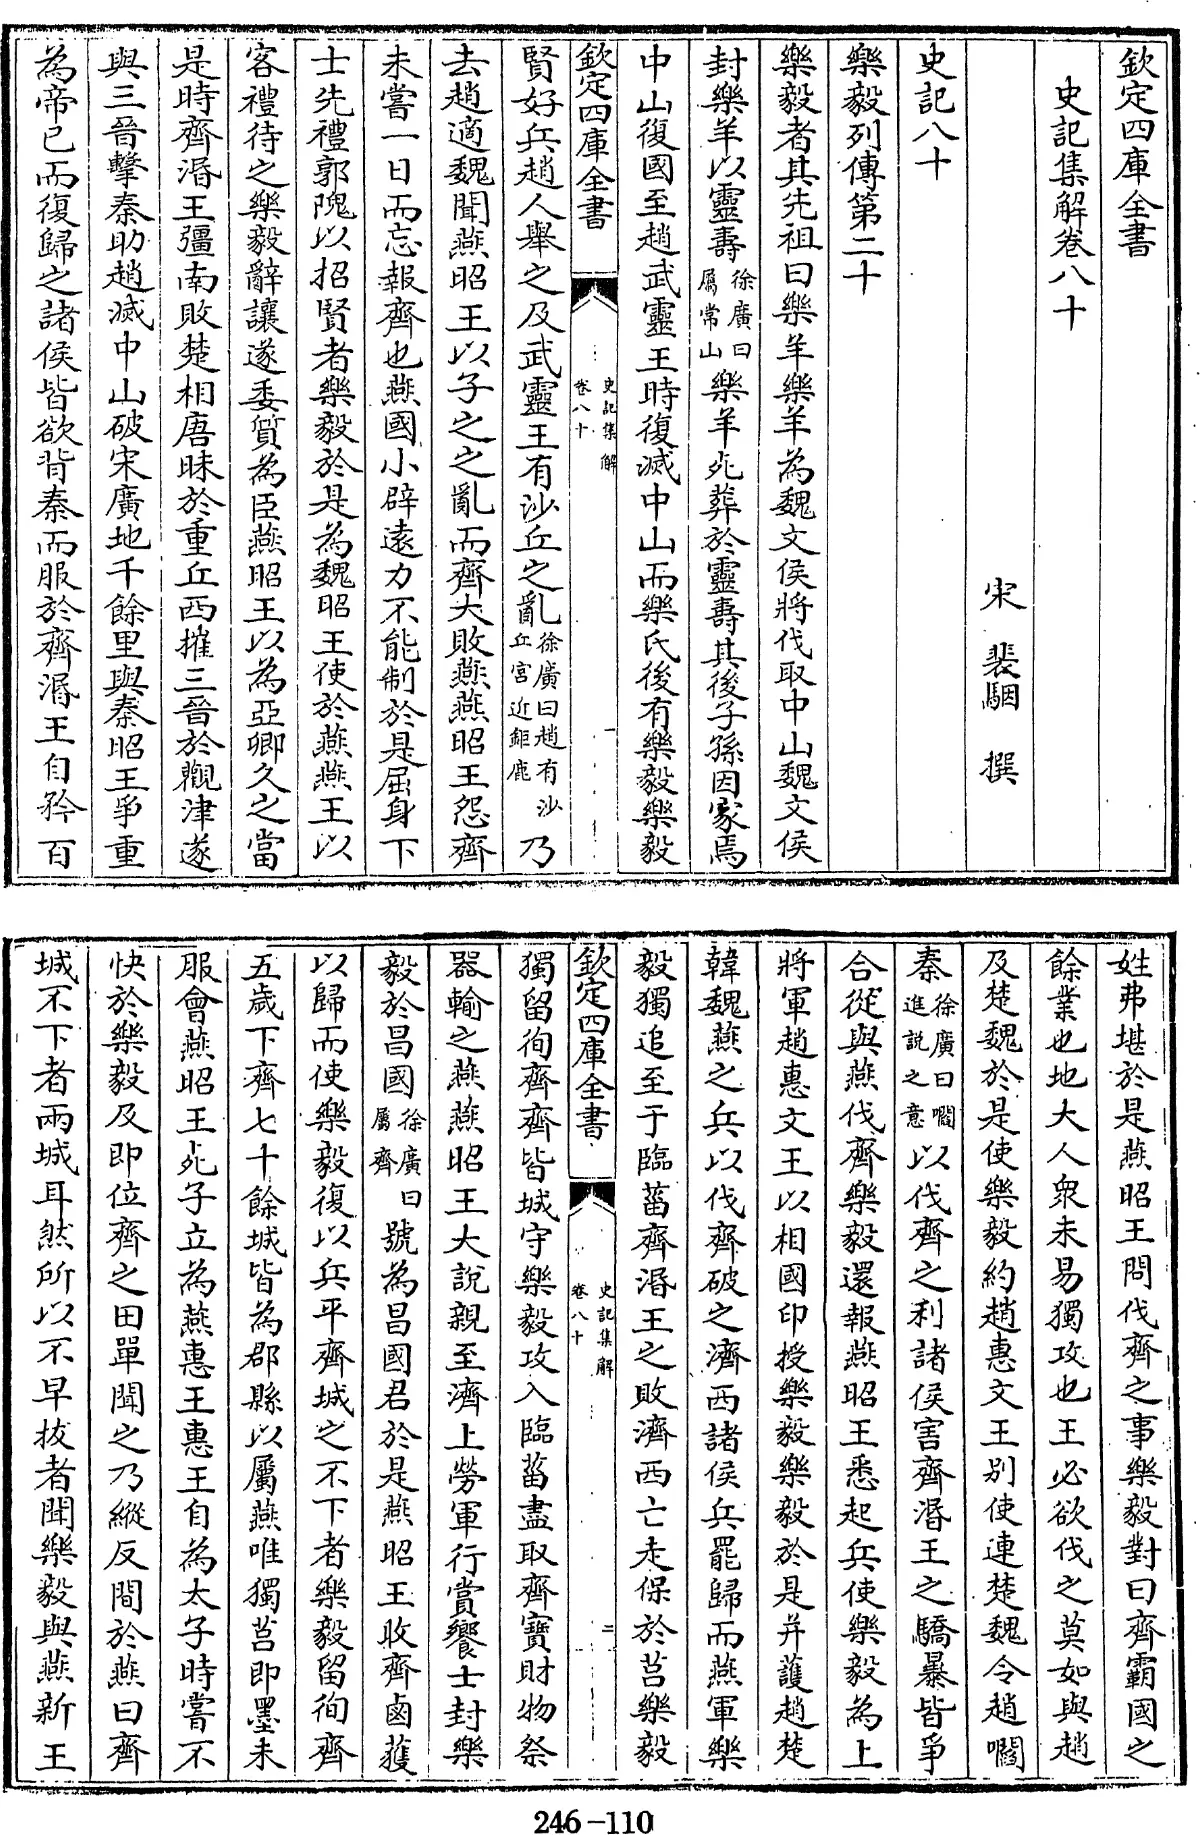 欽定四庫全書
史記集解卷八十
宋 裴駰 撰
史記八十
樂毅列傳第二十
樂毅者其先祖曰樂羊樂羊為魏文侯將伐取中山魏文侯
封樂羊以靈壽徐廣曰屬常山樂羊死葬於靈壽其後子孫因家焉
中山復國至趙武靈王時復滅中山而樂氏後有樂毅樂毅
欽定四庫全書 史記集解 卷八十 一
賢好兵趙人舉之及武靈王有沙丘之亂徐廣曰趙有沙丘宮近鉅鹿乃
去趙適魏聞燕昭王以子之之亂而齊大敗燕燕昭王怨齊
未嘗一日而忘報齊也燕國小辟遠力不能制於是屈身下
士先禮郭隗以招賢者樂毅於是為魏昭王使於燕燕王以
客禮待之樂毅辭讓遂委質為臣燕昭王以為亞卿久之當
是時齊湣王彊南敗楚相唐眛於重丘西摧三晉於觀津遂
與三晉擊秦助趙滅中山破宋廣地千餘里與秦昭王爭重
為帝已而復歸之諸侯皆欲背秦而服於齊湣王自矜百
姓弗堪於是燕昭王問伐齊之事樂毅對曰齊霸國之
餘業也地大人衆未易獨攻也王必欲伐之莫如與趙
及楚魏於是使樂毅約趙惠文王別使連楚魏令趙嚪
秦徐廣曰嚪進說之意以伐齊之利諸侯害齊湣王之驕暴皆爭
合從與燕伐齊樂毅還報燕昭王悉起兵使樂毅為上
將軍趙惠文王以相國印授樂毅樂毅於是并護趙楚
韓魏燕之兵以伐齊破之濟西諸侯兵罷歸而燕軍樂
毅獨追至于臨菑齊湣王之敗濟西亡走保於莒樂毅
欽定四庫全書 史記集解 卷八十 二
獨留徇齊齊皆城守樂毅攻入臨菑盡取齊寶財物祭
器輸之燕燕昭王大說親至濟上勞軍行賞饗士封樂
毅於昌國徐廣曰屬齊號為昌國君於是燕昭王收齊鹵獲
以歸而使樂毅復以兵平齊城之不下者樂毅留徇齊
五歲下齊七十餘城皆為郡縣以屬燕唯獨莒即墨未
服會燕昭王死子立為燕惠王惠王自為太子時嘗不
快於樂毅及即位齊之田單聞之乃縱反間於燕曰齊
城不下者兩城耳然所以不早拔者聞樂毅與燕新王
246-110